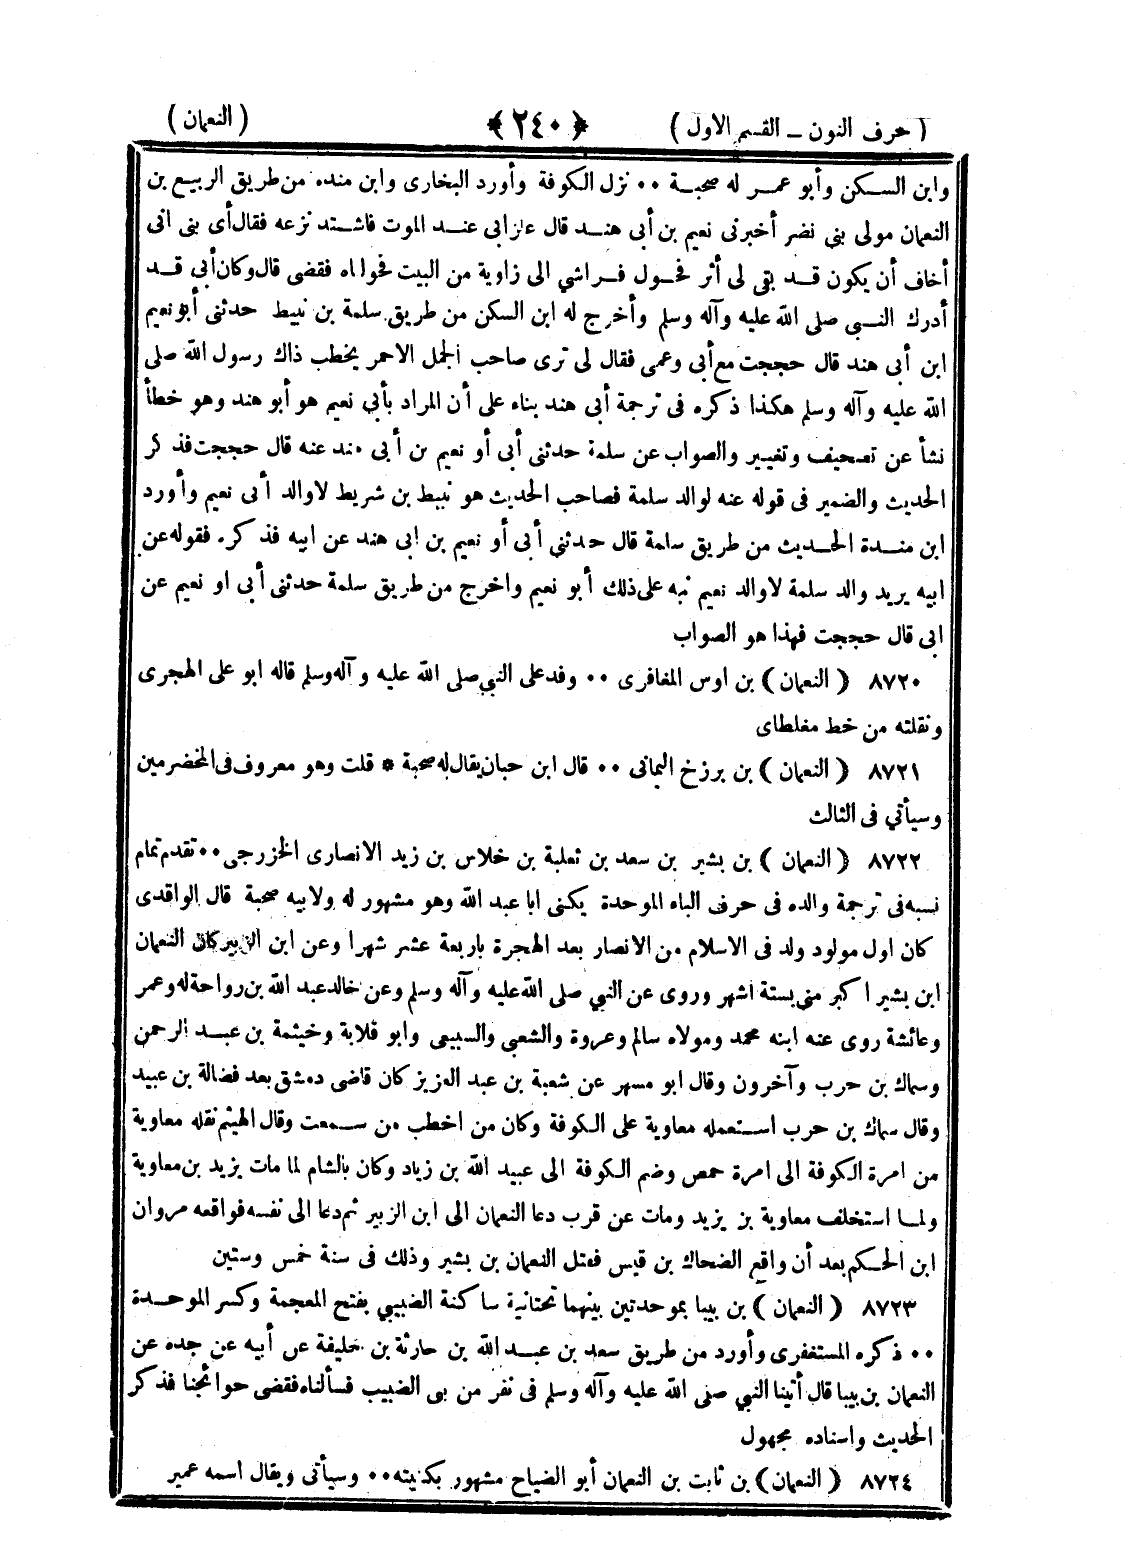 ( حرف النون ــ القسم الاول ) ﴿ ٢٤٠ ﴾ ( النعمان )
وابن السكن وأبو عمر له صحبة ٠٠ نزل الكوفة وأورد البخارى وابن منده من طريق الربيع بن
النعمان مولى بنى نضر أخبرنى نعيم بن أبى هند قال عاد أبى عند الموت فاشتد نزعه فقال أى بنى انى
أخاف أن يكون قد بقى لى أثر فحول فراشي الى زاوية من البيت فحولناه فقضى قال وكان أبي قد
أدرك النبي صلى الله عليه وآله وسلم وأخرج له ابن السكن من طريق سلمة بن نبيط حدثنى أبو نعيم
ابن أبى هند قال حججت مع أبى وعمى فقال لى ترى صاحب الجمل الاحمر يخطب ذاك رسول الله صلى
الله عليه وآله وسلم هكذا ذكره فى ترجمة أبى هند بناء على أن المراد بأبى نعيم هو أبو هند وهو خطأ
نشأ عن تصحيف وتغيير والصواب عن سلمة حدثنى أبى أو نعيم بن أبى هند عنه قال حججت فذكر
الحديث والضمير فى قوله عنه لوالد سلمة فصاحب الحديث هو نبيط بن شريط لا والد أبى نعيم وأورد
ابن مندة الحديث من طريق سلمة قال حدثنى أبى أو نعيم بن ابى هند عن ابيه فذكره فقوله عن
ابيه يريد والد سلمة لا والد نعيم نبه على ذلك أبو نعيم واخرج من طريق سلمة حدثنى أبى او نعيم عن
ابى قال حججت فهذا هو الصواب
٨٧٢٠ ( النعمان ) بن اوس المغافرى ٠٠ وفد على النبي صلى الله عليه وآله وسلم قاله ابو على الهجرى
ونقلته من خط مغلطاى
٨٧٢١ ( النعمان ) بن برزخ اليمانى ٠٠ قال ابن حبان يقال له صحبة * قلت وهو معروف فى المخضرمين
وسيأتي فى الثالث
٨٧٢٢ ( النعمان ) بن بشير بن سعد بن ثعلبة بن خلاس بن زيد الانصارى الخزرجى ٠٠ تقدم تمام
نسبه فى ترجمة والده فى حرف الباء الموحدة يكنى ابا عبد الله وهو مشهور له ولابيه صحبة قال الواقدى
كان اول مولود ولد فى الاسلام من الانصار بعد الهجرة باربعة عشر شهرا وعن ابن الزبير كان النعمان
ابن بشير اكبر منى بستة اشهر وروى عن النبي صلى الله عليه وآله وسلم وعن خالد عبد الله بن رواحة له وعمر
وعائشة روى عنه ابنه محمد ومولاه سالم وعروة والشعبى والسبيعى وابو قلابة وخيثمة بن عبد الرحمن
وسماك بن حرب وآخرون وقال ابو مسهر عن شعبة بن عبد العزيز كان قاضى دمشق بعد فضالة بن عبيد
وقال سماك بن حرب استعمله معاوية على الكوفة وكان من اخطب من سمعت وقال الهيثم نقله معاوية
من امرة الكوفة الى امرة حمص وضم الكوفة الى عبيد الله بن زياد وكان بالشام لما مات يزيد بن معاوية
ولما استخلف معاوية بن يزيد ومات عن قرب دعا النعمان الى ابن الزبير ثم دعا الى نفسه فواقعه مروان
ابن الحكم بعد أن واقع الضحاك بن قيس فقتل النعمان بن بشير وذلك فى سنة خمس وستين
٨٧٢٣ ( النعمان ) بن بيبا بموحدتين بينهما تحتانية ساكنة الضبيبي بفتح المعجمة وكسر الموحدة
٠٠ ذكره المستغفرى وأورد من طريق سعد بن عبد الله بن حارثة بن خليفة عن أبيه عن جده عن
النعمان بن بيبا قال أتينا النبي صلى الله عليه وآله وسلم فى نفر من بى الضبيب فسألناه فقضى حوائجنا فذكر
الحديث واسناده مجهول
٨٧٢٤ ( النعمان ) بن ثابت بن النعمان أبو الضياح مشهور بكنيته ٠٠ وسيأتى ويقال اسمه عمير